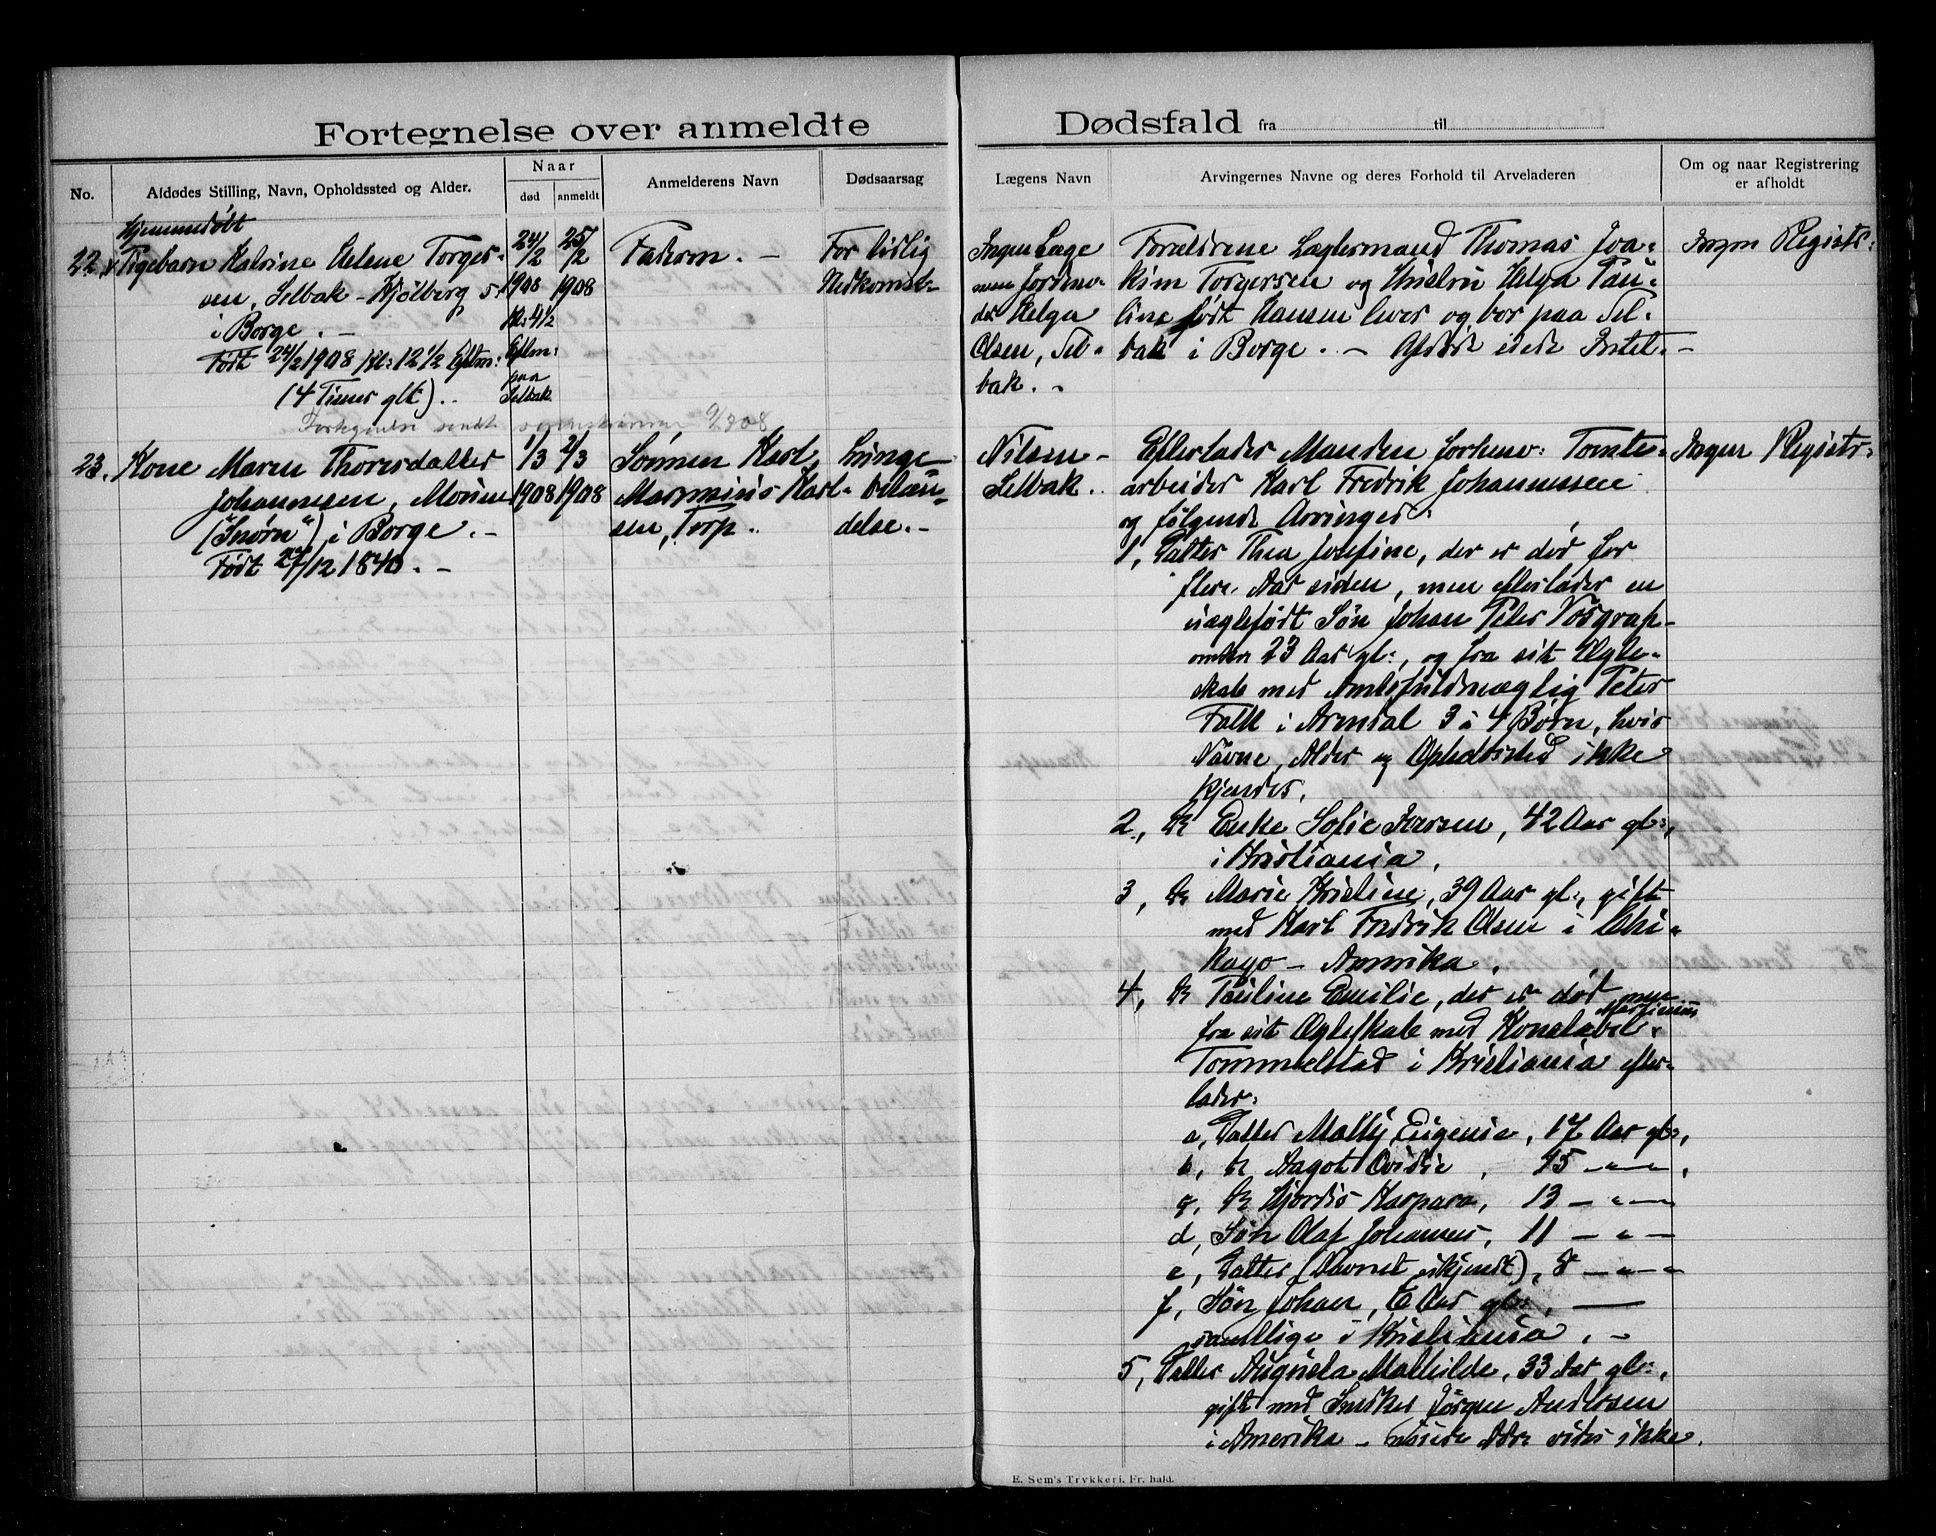 Fortegnelse over anmeldte
Dødsfald fra til
No.
Afdødes Stilling, Navn, Opholdssted og Alder.
Naar
død
anmeldt
Anmelderens Navn
Dødsaarsag
Lægens Navn
Arvingernes Navne og deres Forhold til Arveladeren
Om og naar Registrering
er afholdt
Hjemmedøbt
22. Pigebarn Katrine Helene Torger-
sen, Selbak - Kjølberg
i Borge. -
Født 24/2 1908 kl: 12 1/2 Eftm:
(4 Timer glt)..
24/2
1908
Kl: 4 1/2
Eftm:
paa
Selbak
25/2
1908
Faderen. -
For tidlig
Nedkomst-
Ingen Læge
men Jordmo-
der Helga
Olsen, Sel-
bak. -
Forældrene Lagtermand Thomas Joa-
kim Torgersen og Hustru Helga Pau-
line født Hansen lever og bor paa Sel-
bak i Borge. - Afdøde eiede Intet. -
Ingen Registr:
Fortegnelse sendt sorenskriveren 9/3 08
23. Kone Maren Thoresdatter
Johannesen, Moum
("Snørn") i Borge. -
Født 24/12 1840. -
1/3
1908
2/3
1908
Sønnen Karl
Marinius Karl-
sen, Torp..
Lunge-
betæn-
delse. -
Nilsen -
Selbak..
Efterlader Manden forhenv: Tomte-
arbeider Karl Fredrik Johannessen
og følgende Arvinger:
1, Datter Thea Josefine, der er død for
flere Aar siden, men efterlader en
uægtefødt Søn Johan Peter
23 Aar gl:, og fra sit Ægte-
skab med Amtsfuldmægtig Peter
Falk i Arendal 3 à 4 Børn, hvis
Navne, Alder og Opholdssted ikke
kjendes.
2, Dr Enke Sofie Iversen, 42 Aar gl:,
i Kristiania.
3, Dr Marie Kristine, 39 Aar gl:, gift
med Karl Fredrik Olsen i Chi-
kago - Amerika.
4, Dr Pauline Emilie, der er død men
fra sit Ægteskab med Konstabel Martinius
Tommelstad i Kristiania efter-
lader:
a, Datter Mally Eugenia, 17 Aar gl:,
b, Dr Aagot Ovidie, 15 - " - ,
c, Dr Hjordis Kaspara, 13 - " -
d, Søn Olaf Johannes, 11 - " -
e, Datter (Navnet ukjendt), 8 - " -
f, Søn Johan, 6 Aar gl:, -
samtlige i Kristiania. -
5, Datter Augusta Mathilde, 33 Aar gl:,
gift med Snedker Jørgen Andersen
i Amerika - vides ikke.
Ingen Registr:
E. Sem's Trykkeri, Fr.hald.